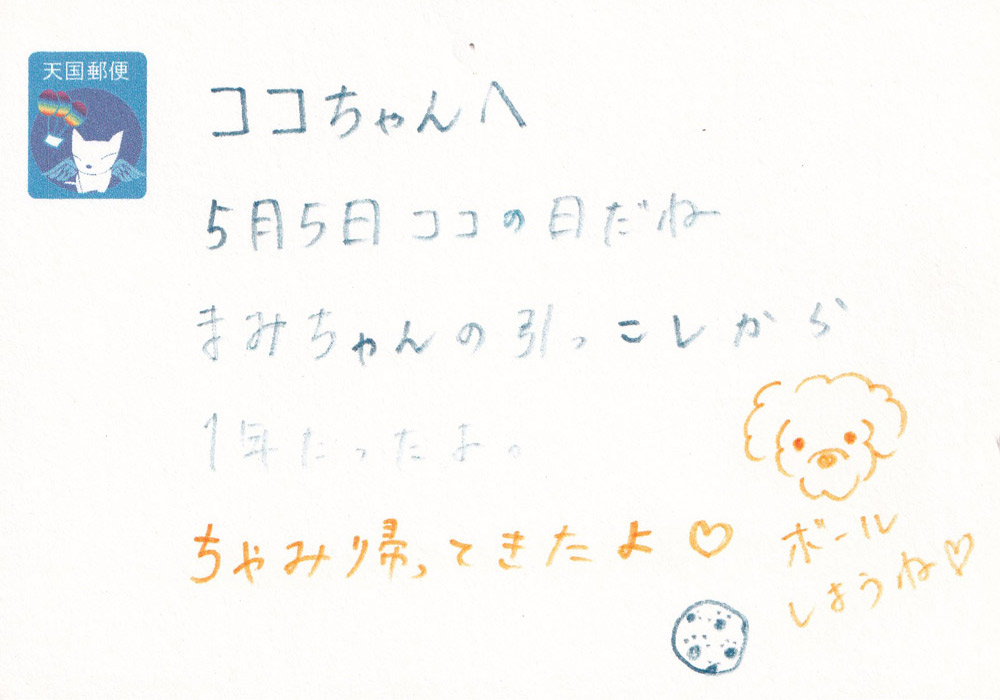 天国郵便
ココちゃんへ
5月5日 ココの日だね
まみちゃんの引っこしから
1年たったよ。
ちゃみり帰ってきたよ♡
ボール
しようね♡